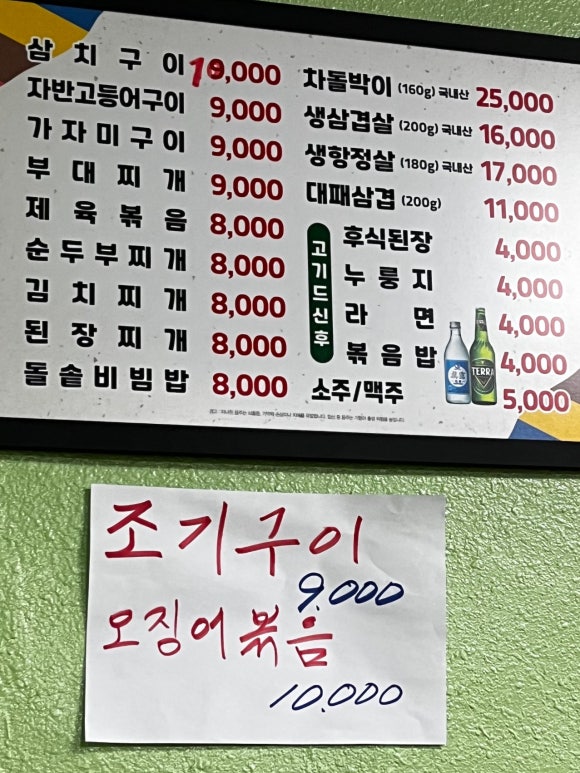 삼치구이 10,000
자반고등어구이 9,000
가자미구이 9,000
부대찌개 9,000
제육볶음 8,000
순두부찌개 8,000
김치찌개 8,000
된장찌개 8,000
돌솥비빔밥 8,000
차돌박이 (160g) 국내산 25,000
생삼겹살 (200g) 국내산 16,000
생항정살 (180g) 국내산 17,000
대패삼겹 (200g) 11,000
고기드신후
후식된장 4,000
누룽지 4,000
라면 4,000
볶음밥 4,000
소주/맥주 5,000
TERRA
조기구이
9.000
오징어볶음
10.000